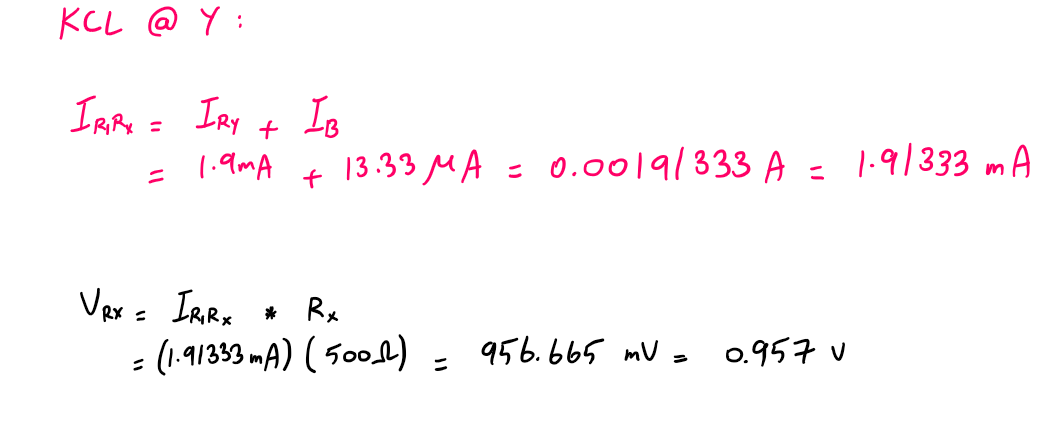 KCL @ Y :
I_{R_1R_x} = I_{RY} + I_B
= 1.9mA + 13.33 μA = 0.00191333 A = 1.91333 mA
V_{RX} = I_{R_1R_x} * R_x
= (1.91333 mA) (500Ω) = 956.665 mV = 0.957 V